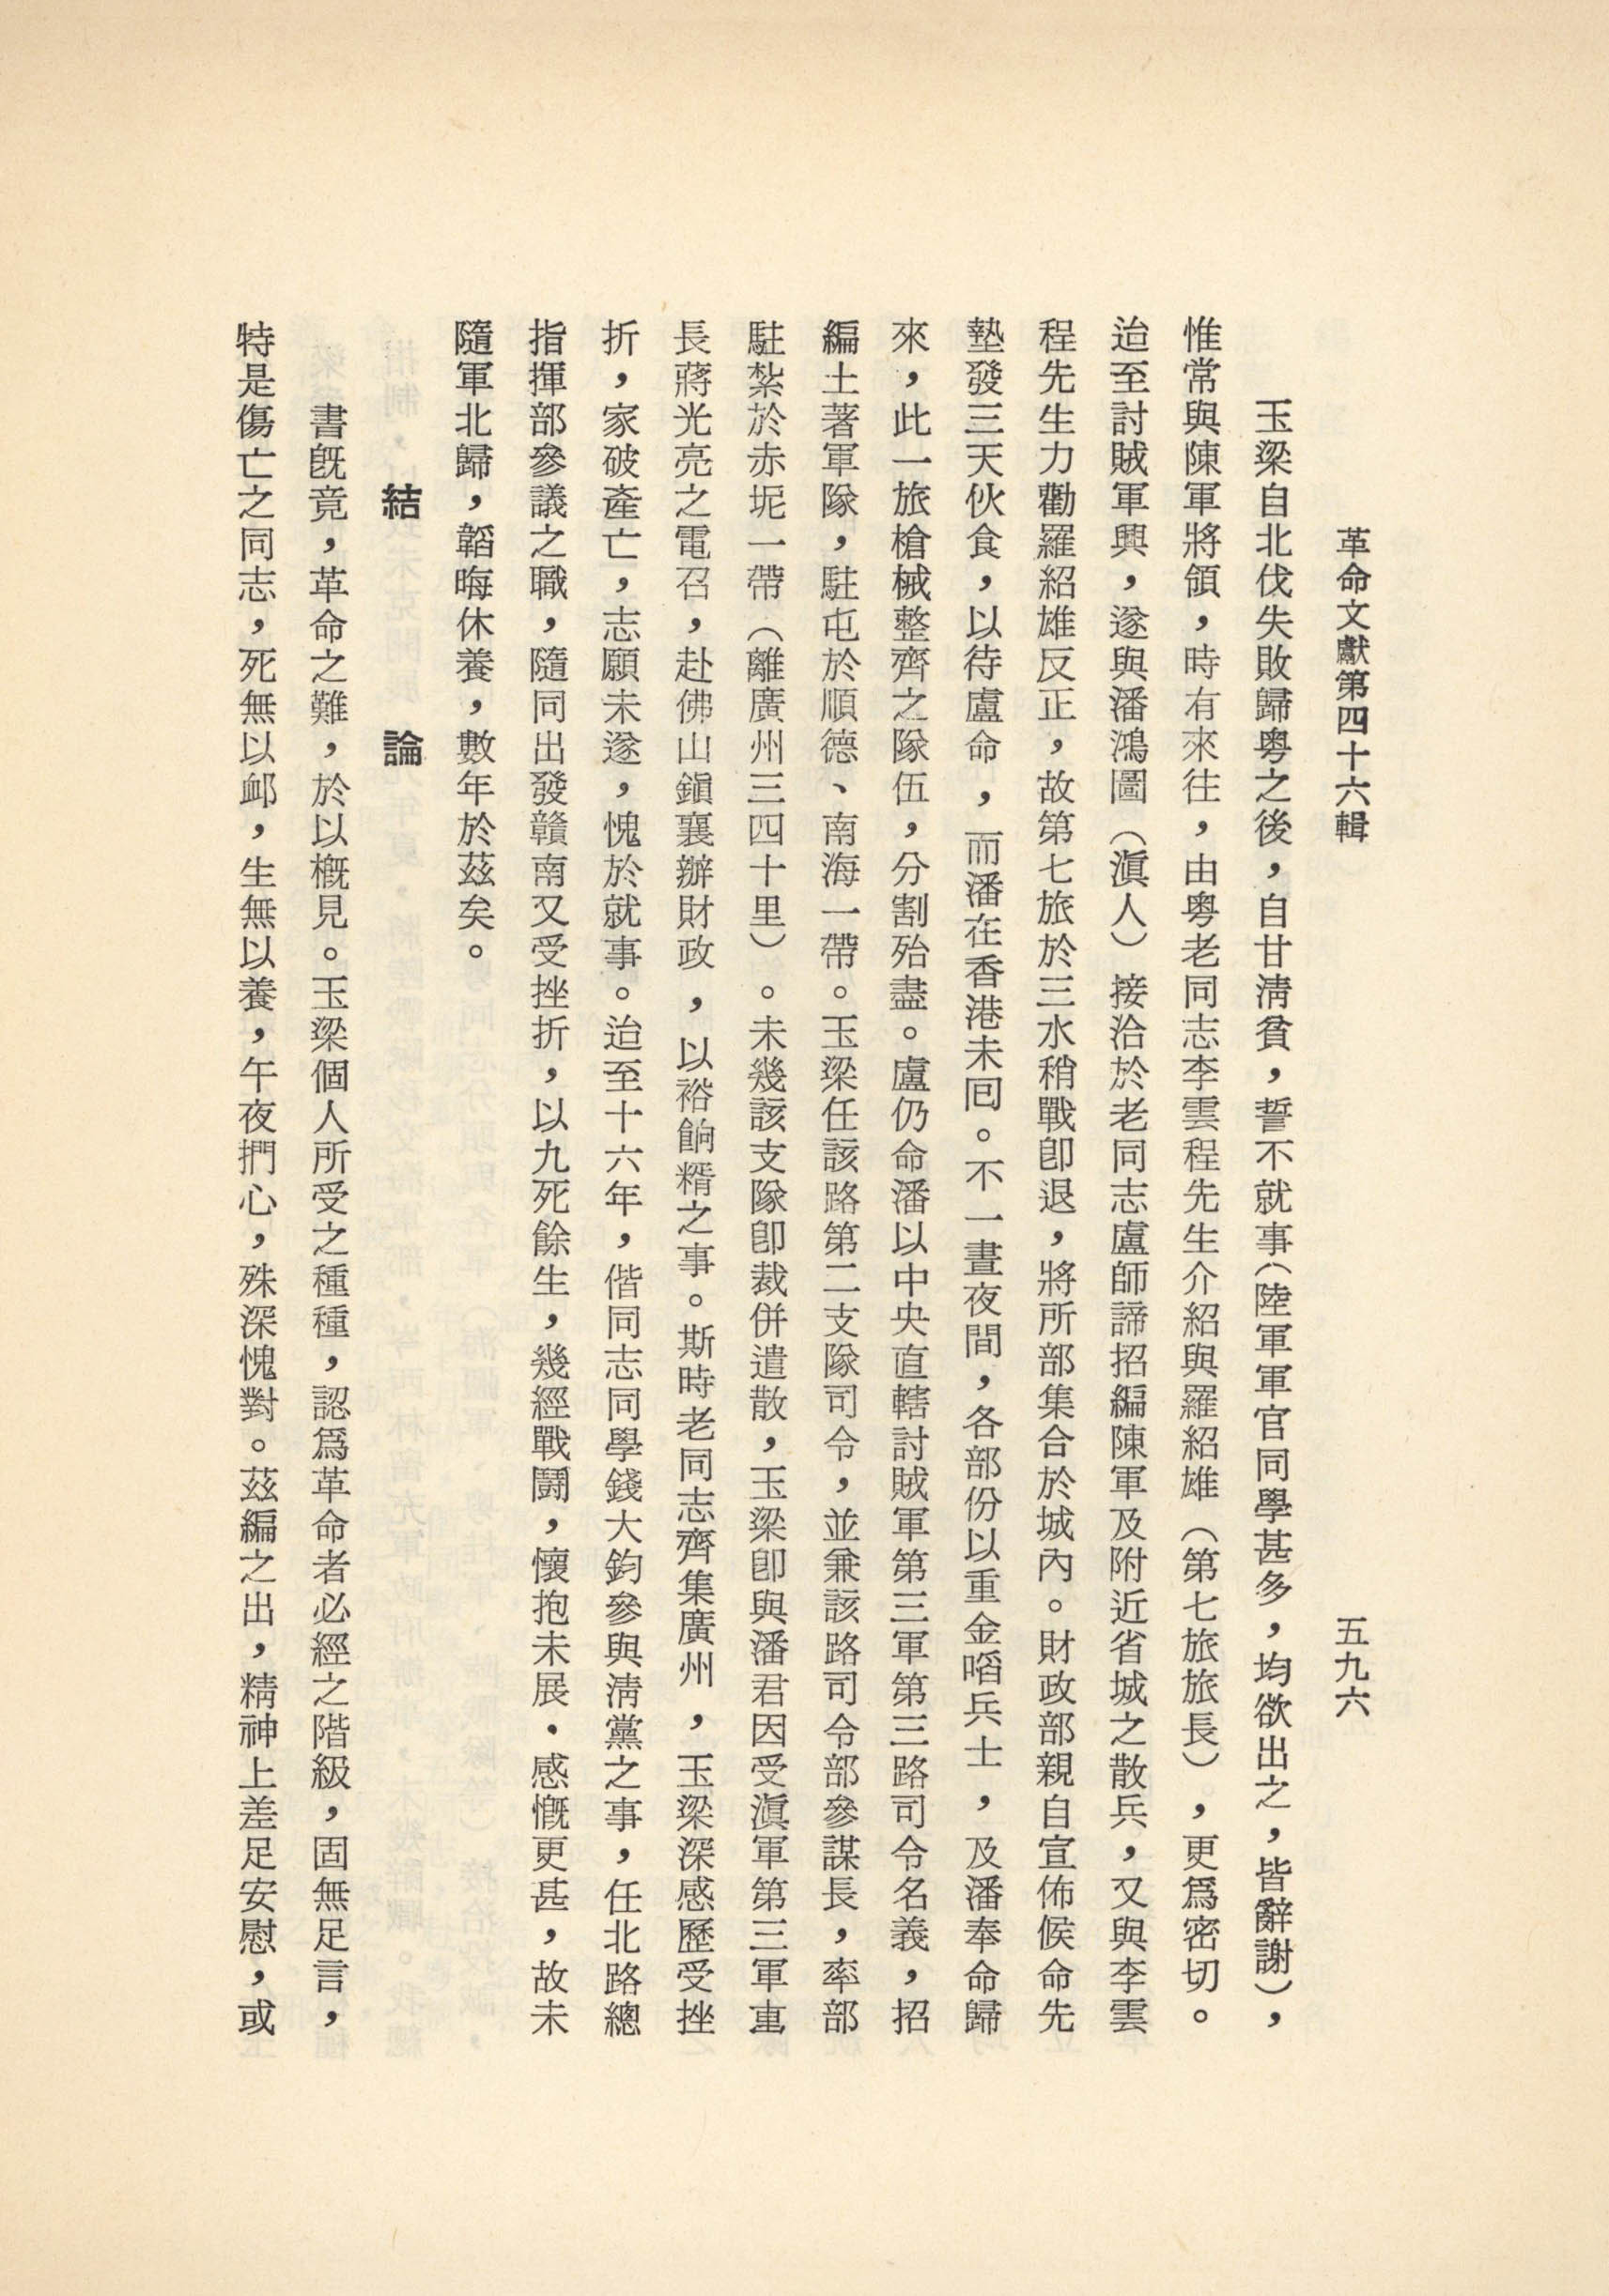 革命文獻第四十六輯
五九六
玉梁自北伐失敗歸粵之後，自甘淸貧，誓不就事（陸軍軍官同學甚多，均欲出之，皆辭謝），
惟常與陳軍將領，時有來往，由粵老同志李雲程先生介紹與羅紹雄（第七旅旅長），更爲密切。
迨至討賊軍興，遂與潘鴻圖（滇人）接洽於老同志盧師諦招編陳軍及附近省城之散兵，又與李雲
程先生力勸羅紹雄反正，故第七旅於三水稍戰卽退，將所部集合於城內。財政部親自宣佈候命先
墊發三天伙食，以待盧命，而潘在香港未囘。不一晝夜間，各部份以重金啗兵士，及潘奉命歸
來，此一旅槍械整齊之隊伍，分割殆盡。盧仍命潘以中央直轄討賊軍第三軍第三路司令名義，招
編土著軍隊，駐屯於順德、南海一帶。玉梁任該路第二支隊司令，並兼該路司令部參謀長，率部
駐紮於赤坭一帶（離廣州三四十里）。未幾該支隊卽裁併遣散，玉梁卽與潘君因受滇軍第三軍軍
長蔣光亮之電召，赴佛山鎭襄辦財政，以裕餉糈之事。斯時老同志齊集廣州，玉梁深感歷受挫
折，家破產亡，志願未遂，愧於就事。迨至十六年，偕同志同學錢大鈞參與淸黨之事，任北路總
指揮部參議之職，隨同出發贛南又受挫折，以九死餘生，幾經戰鬪，懷抱未展．感慨更甚，故未
隨軍北歸，韜晦休養，數年於茲矣。
結論
書旣竟，革命之難，於以槪見。玉梁個人所受之種種，認爲革命者必經之階級，固無足言，
特是傷亡之同志，死無以卹，生無以養，午夜捫心，殊深愧對。茲編之出，精神上差足安慰，或